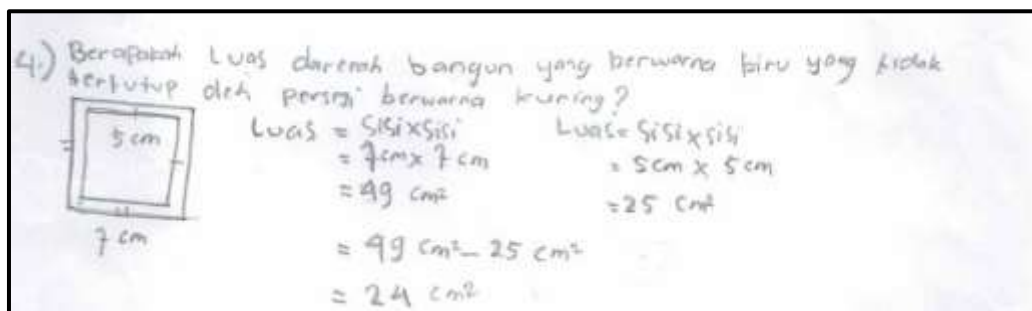 4.) Berapakah Luas darerah bangun yang berwarna biru yang tidak
tertutup oleh persegi berwarna kuning?
5 cm
7 cm
Luas = Sisi x Sisi
= 7cm x 7 cm
= 49 cm²
Luas = Sisi x sisi
= 5cm x 5 cm
= 25 cm²
= 49 cm² - 25 cm²
= 24 cm²